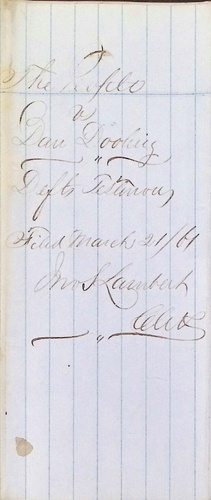 The People
vs
Dan Dooling
Defts Testimony
Filed March 21/61
Jno S Lambert
Clerk